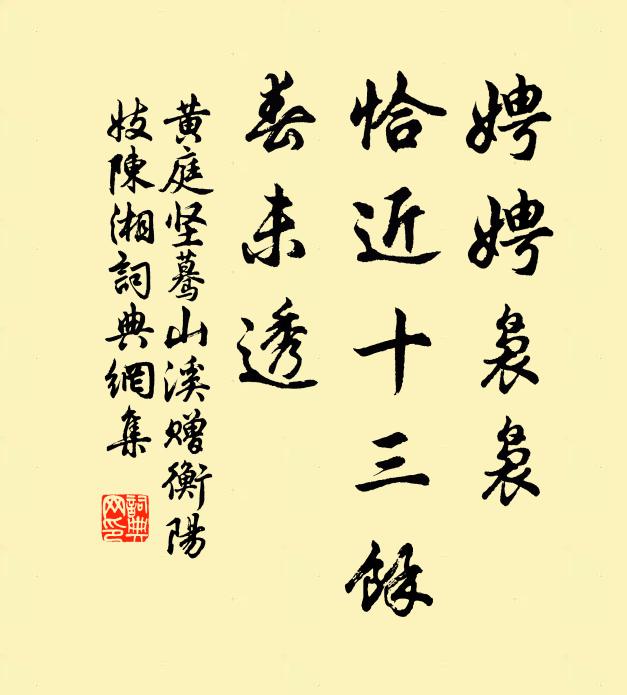 娉娉裊裊
恰近十三餘
春未透
黄庭坚蓦山溪赠衡陽
妓陳湘詞典網集
詞典网印